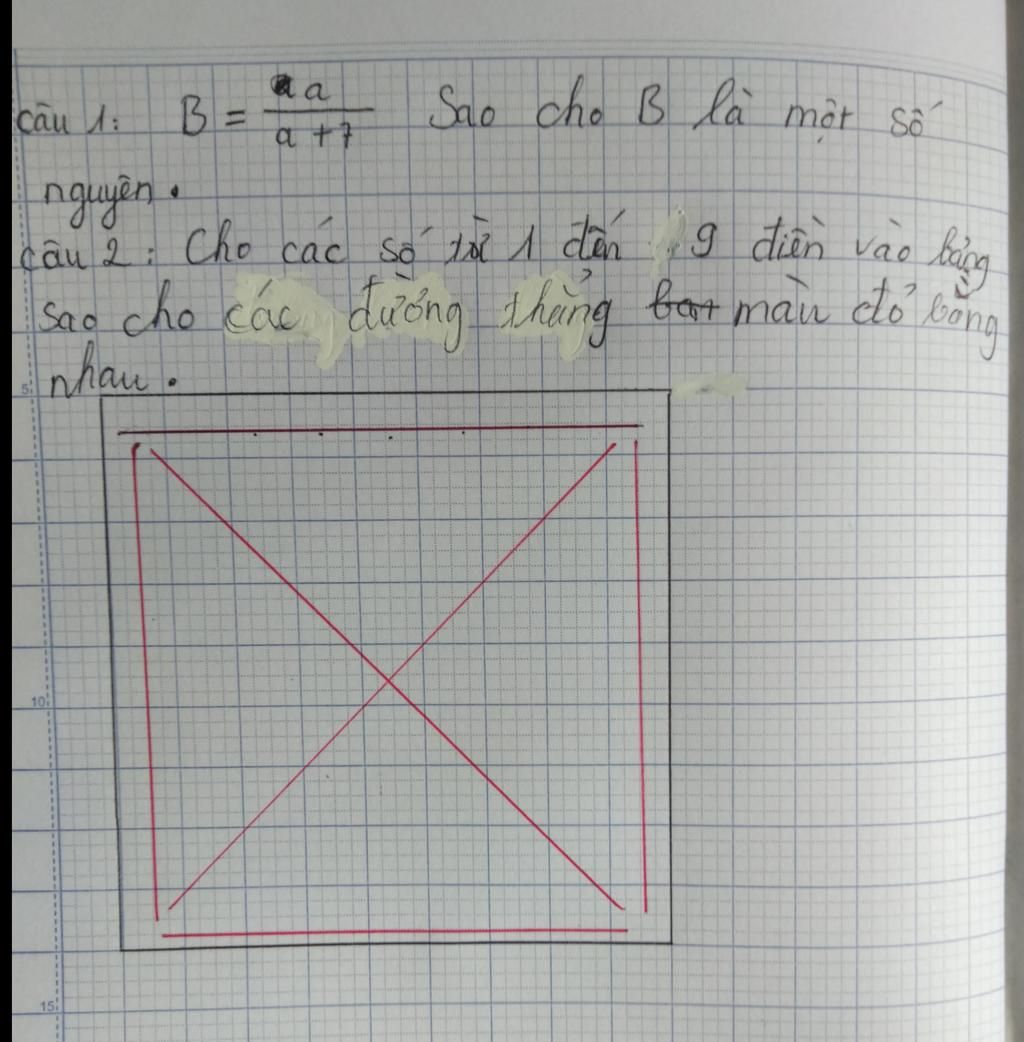 câu 1: B = a / a + 7 Sao cho B là một số
nguyên.
câu 2: Cho các số từ 1 đến 9 điền vào bảng
sao cho các đường thẳng màu đỏ bằng
nhau.
5
10
15